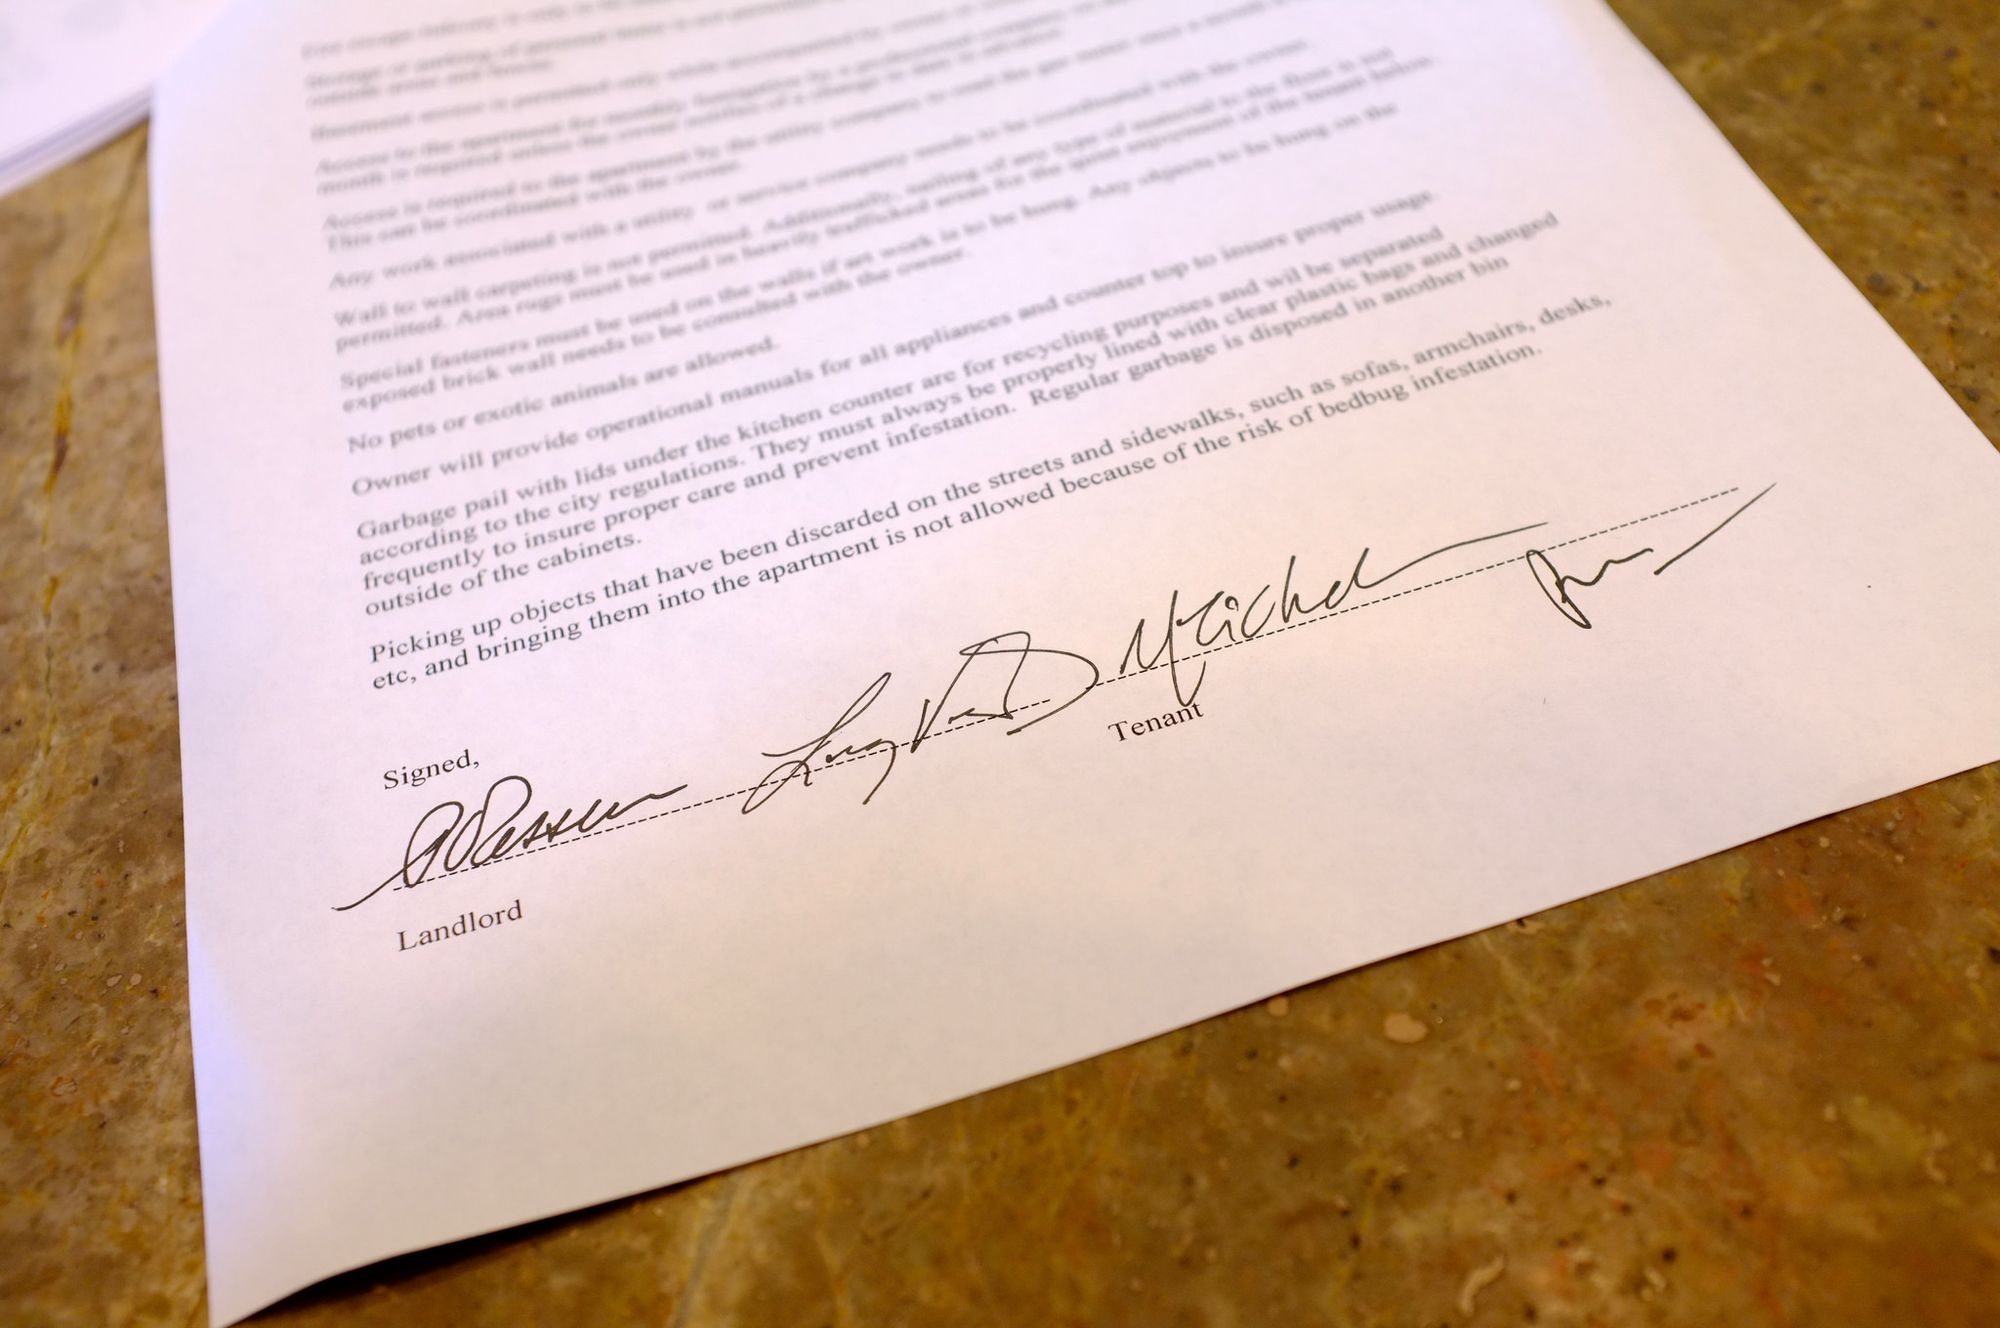 Storage or parking of personal items is not permitted
outside areas and hotels.
Basement access is permitted only while accompanied by owner or
Access to the apartment for monthly fumigation by a professional company on
month is required unless the owner notifies of a change in date in advance.
Access is required to the apartment by the utility company to read the gas meter once a month
This can be coordinated with the owner.
Any work associated with a utility or service company needs to be coordinated with the owner.
Wall to wall carpeting is not permitted. Additionally, nailing of any type of material to the floor is not
permitted. Area rugs must be used in heavily trafficked areas for the quiet enjoyment of the tenant below.
Special fasteners must be used on the walls if art work is to be hung. Any objects to be hung on the
exposed brick wall needs to be consulted with the owner.
No pets or exotic animals are allowed.
Owner will provide operational manuals for all appliances and counter top to insure proper usage.
Garbage pail with lids under the kitchen counter are for recycling purposes and wil be separated
according to the city regulations. They must always be properly lined with clear plastic bags and changed
frequently to insure proper care and prevent infestation. Regular garbage is disposed in another bin
outside of the cabinets.
Picking up objects that have been discarded on the streets and sidewalks, such as sofas, armchairs, desks,
etc, and bringing them into the apartment is not allowed because of the risk of bedbug infestation.
Signed,
Landlord
Tenant